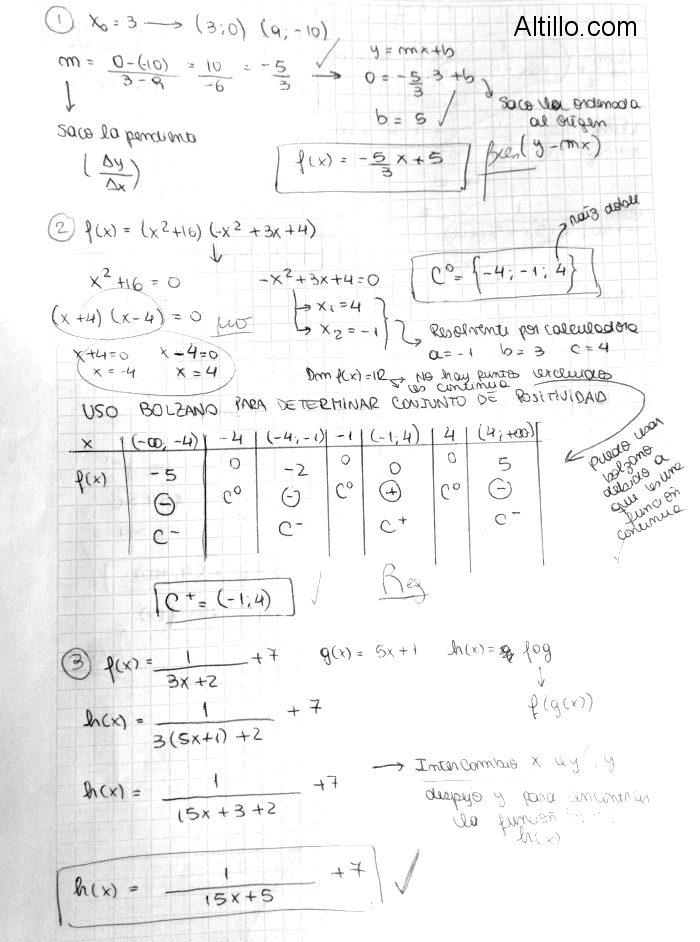 Altillo.com
① x₀ = 3 → (3;0) (9;-10)
m = 0-(-10) / 3-9 = 10 / -6 = -5/3 → 0 = -5/3 · 3 + b
y = mx+b
Saco la ordenada al origen
b = 5 ✓
Saco la pendiente
(Δy/Δx)
f(x) = -5/3 x + 5
Bien (y - mx)
② f(x) = (x²+16) (-x²+3x+4)
raíz doble
x²+16 = 0
-x²+3x+4 = 0
C⁰ = {-4; -1; 4}
(x+4) (x-4) = 0 no
x₁ = 4
x₂ = -1
Resolvente por calculadora
a = -1 b = 3 c = 4
x+4=0 x-4=0
x = -4 x = 4
Dom f(x) = IR → No hay puntos excluidos
es continua
USO BOLZANO PARA DETERMINAR CONJUNTO DE POSITIVIDAD
x (-∞, -4) -4 (-4; -1) -1 (-1; 4) 4 (4; +∞)
f(x) -5 0 -2 0 0 0 5
⊖ C⁰ ⊖ C⁰ ⊕ C⁰ ⊖
C⁻ C⁻ C⁺ C⁻
puedo usar
bolzano
debido a
que es una
función
continua
C⁺ = (-1; 4) ✓
Reg
③ f(x) = 1 / 3x+2 + 7 g(x) = 5x+1 h(x) = fog
f(g(x))
h(x) = 1 / 3(5x+1)+2 + 7
h(x) = 1 / 15x+3+2 + 7
→ Intercambio x y
despejo y para encontrar
la función
h(x)
h(x) = 1 / 15x+5 + 7 ✓